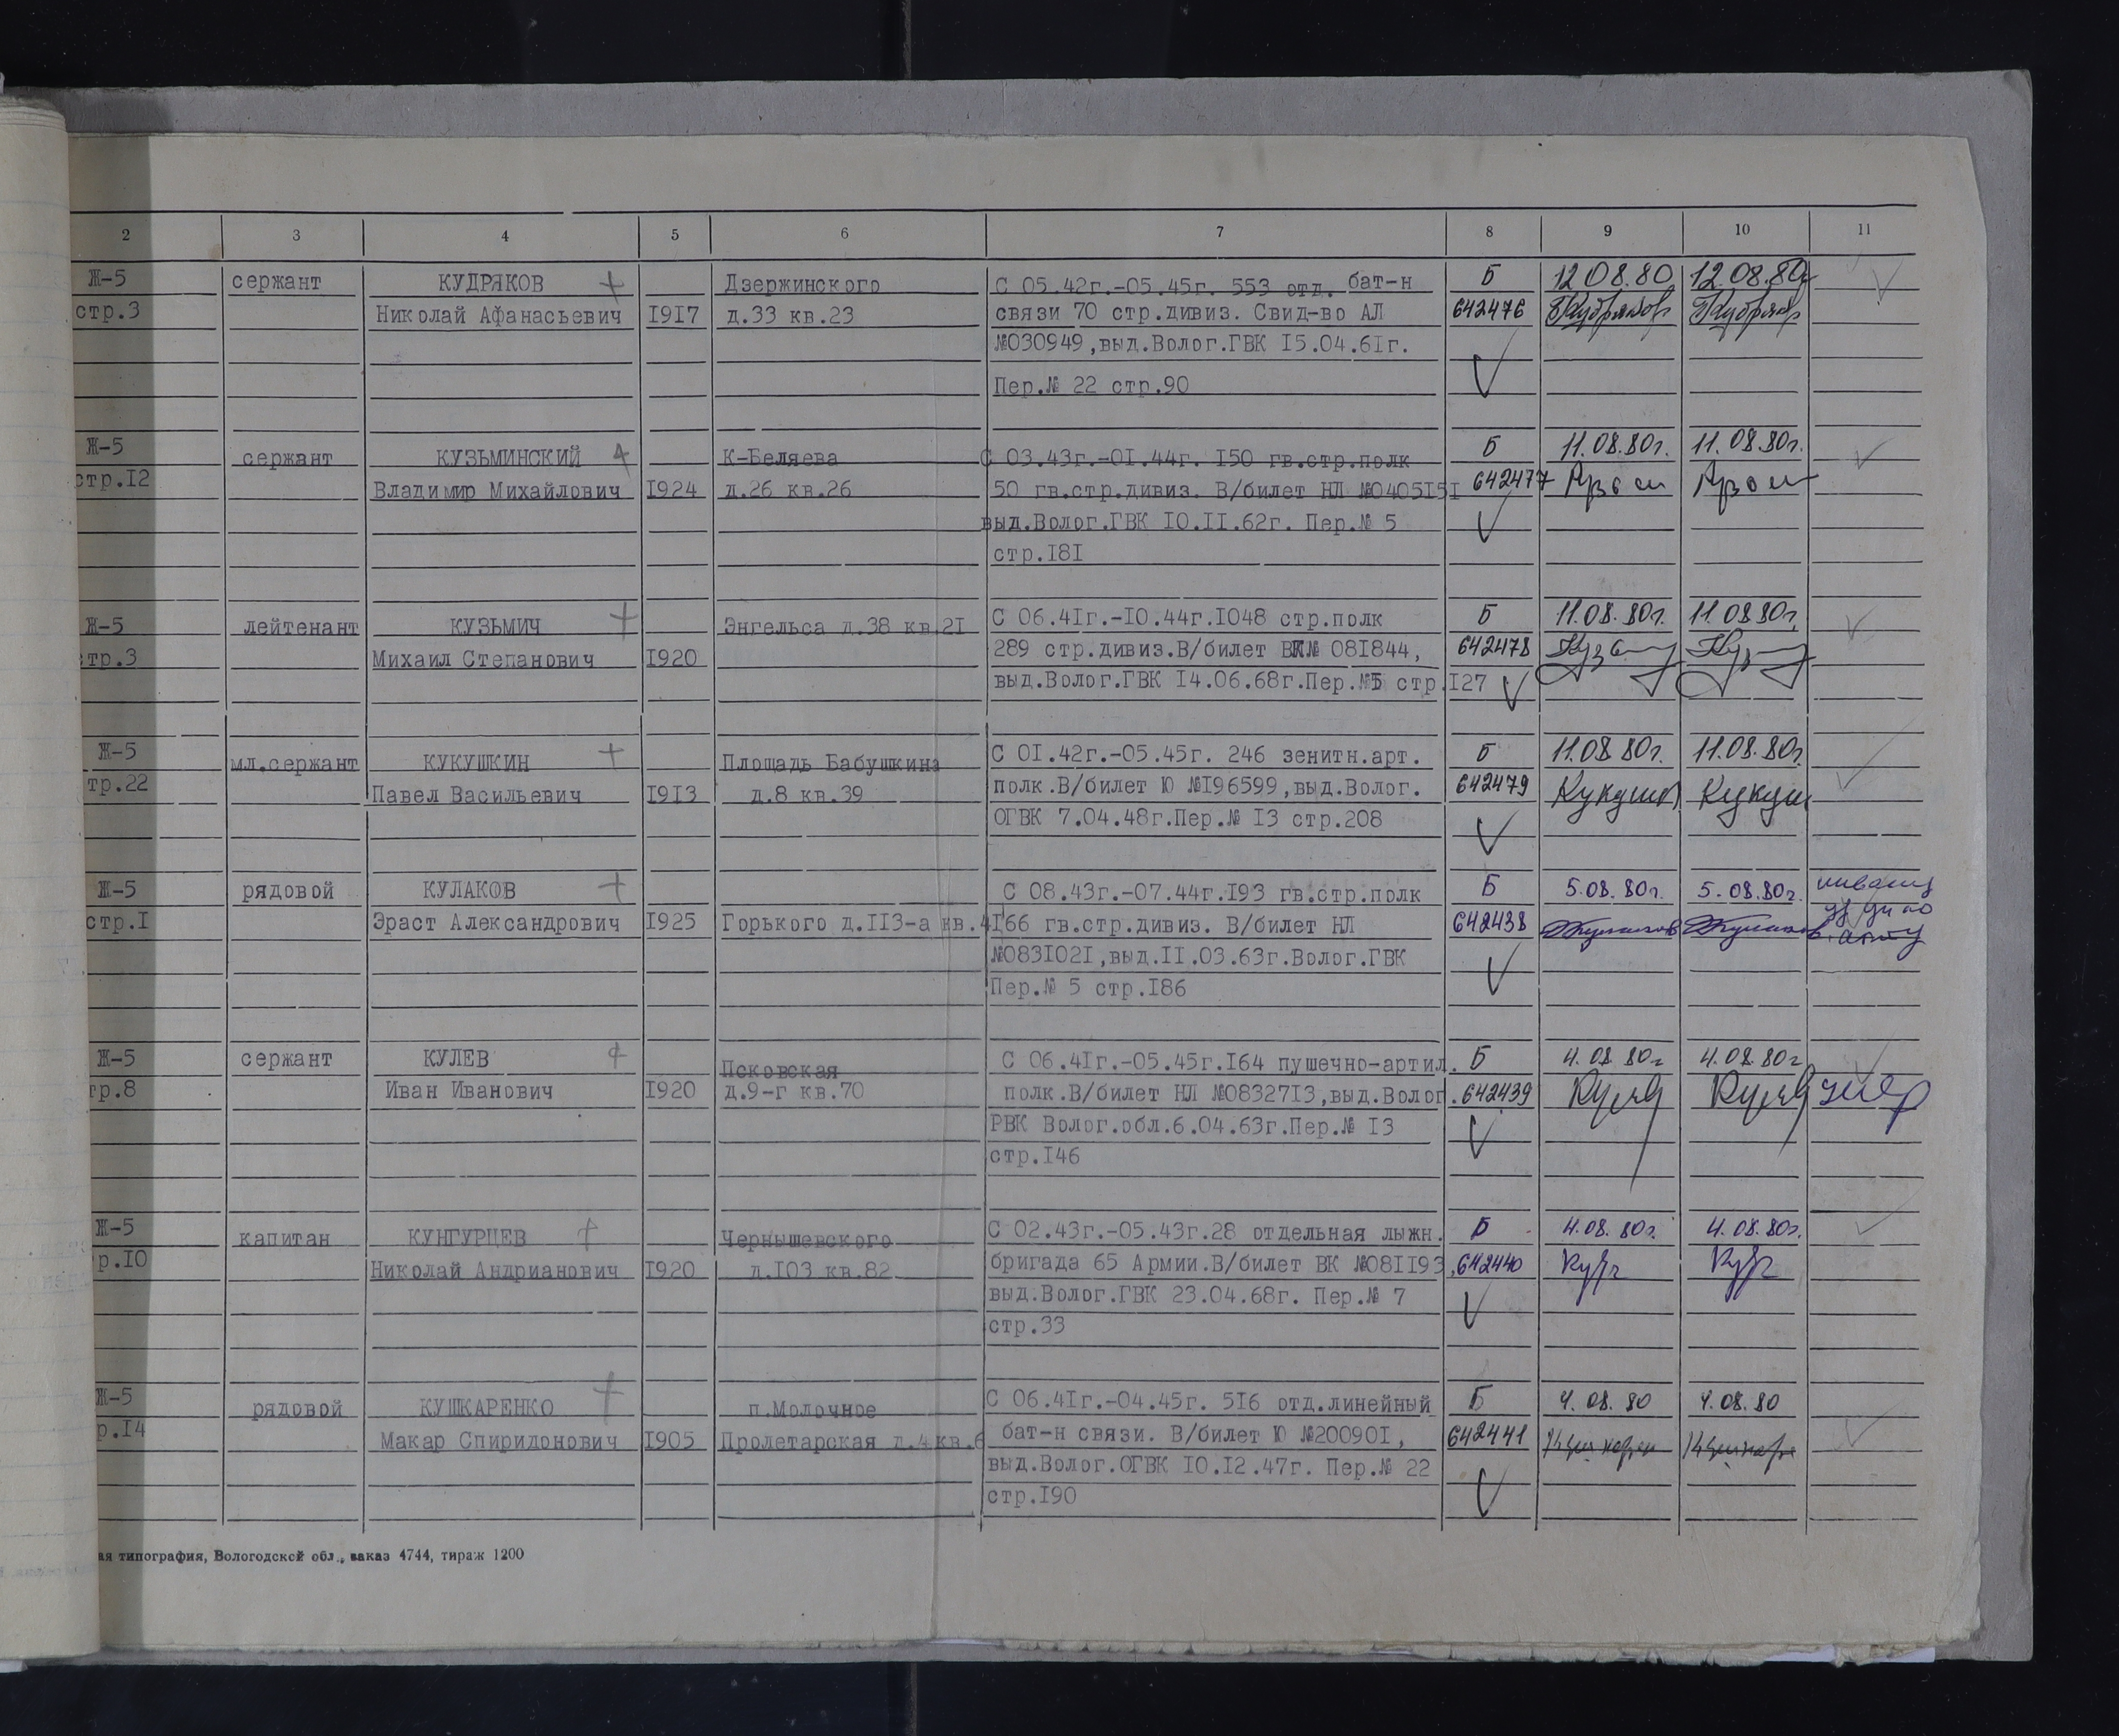 2 3 4 5 6 7 8 9 10 11
Ж-5 сержант КУДРЯКОВ Дзержинского С 05.42г.-05.45г. 553 отд. бат-н Б 12 08.80 12.08.80г
стр.3 Николай Афанасьевич 1917 д.33 кв.23 связи 70 стр.дивиз. Свид-во АЛ 642476 Кудряков Кудряков
№030949,выд.Волог.ГВК 15.04.61г.
Пер.№ 22 стр.90
Ж-5 сержант КУЗЬМИНСКИЙ К-Беляева С 03.43г.-01.44г. 150 гв.стр.полк Б 11.08.80г. 11.08.80г.
стр.12 Владимир Михайлович 1924 д.26 кв.26 50 гв.стр.дивиз. В/билет НЛ №0405151 642477
выд.Волог.ГВК 10.11.62г. Пер.№ 5
стр.181
Ж-5 лейтенант КУЗЬМИЧ Энгельса д.38 кв.21 С 06.41г.-10.44г.1048 стр.полк Б 11.08.80г. 11.08 80г,
стр.3 Михаил Степанович 1920 289 стр.дивиз.В/билет ВК№ 081844, 642478
выд.Волог.ГВК 14.06.68г.Пер.№5 стр.127
Ж-5 мл.сержант КУКУШКИН Площадь Бабушкина С 01.42г.-05.45г. 246 зенитн.арт. Б 11.08 80г. 11.08.80г.
тр.22 Павел Васильевич 1913 д.8 кв.39 полк.В/билет Ю №196599,выд.Волог. 642479 Кукушк Кукуш
ОГВК 7.04.48г.Пер.№ 13 стр.208
Ж-5 рядовой КУЛАКОВ С 08.43г.-07.44г.193 гв.стр.полк Б 5.08.80г. 5.08.80г.
стр.1 Эраст Александрович 1925 Горького д.113-а кв.41 66 гв.стр.дивиз. В/билет НЛ 642438 Кулаков Кулаков
№0831021,выд.11.03.63г.Волог.ГВК
Пер.№ 5 стр.186
Ж-5 сержант КУЛЕВ Псковская С 06.41г.-05.45г.164 пушечно-артил. Б 4.08 80г 4.08.80г
тр.8 Иван Иванович 1920 д.9-г кв.70 полк.В/билет НЛ №0832713,выд.Волог. 642439 Кулев Кулев умер
РВК Волог.обл.6.04.63г.Пер.№ 13
стр.146
Ж-5 капитан КУНГУРЦЕВ Чернышевского С 02.43г.-05.43г.28 отдельная лыжн. Б 4.08.80г. 4.08.80г.
р.10 Николай Андрианович 1920 д.103 кв.82 бригада 65 Армии.В/билет ВК №081193, 642440
выд.Волог.ГВК 23.04.68г. Пер.№ 7
стр.33
Ж-5 рядовой КУШКАРЕНКО п.Молочное С 06.41г.-04.45г. 516 отд.линейный Б 4.08.80 4.08.80
р.14 Макар Спиридонович 1905 Пролетарская д.4 кв.6 бат-н связи. В/билет Ю №200901, 642441
выд.Волог.ОГВК 10.12.47г. Пер.№ 22
стр.190
ая типография, Вологодской обл., заказ 4744, тираж 1200